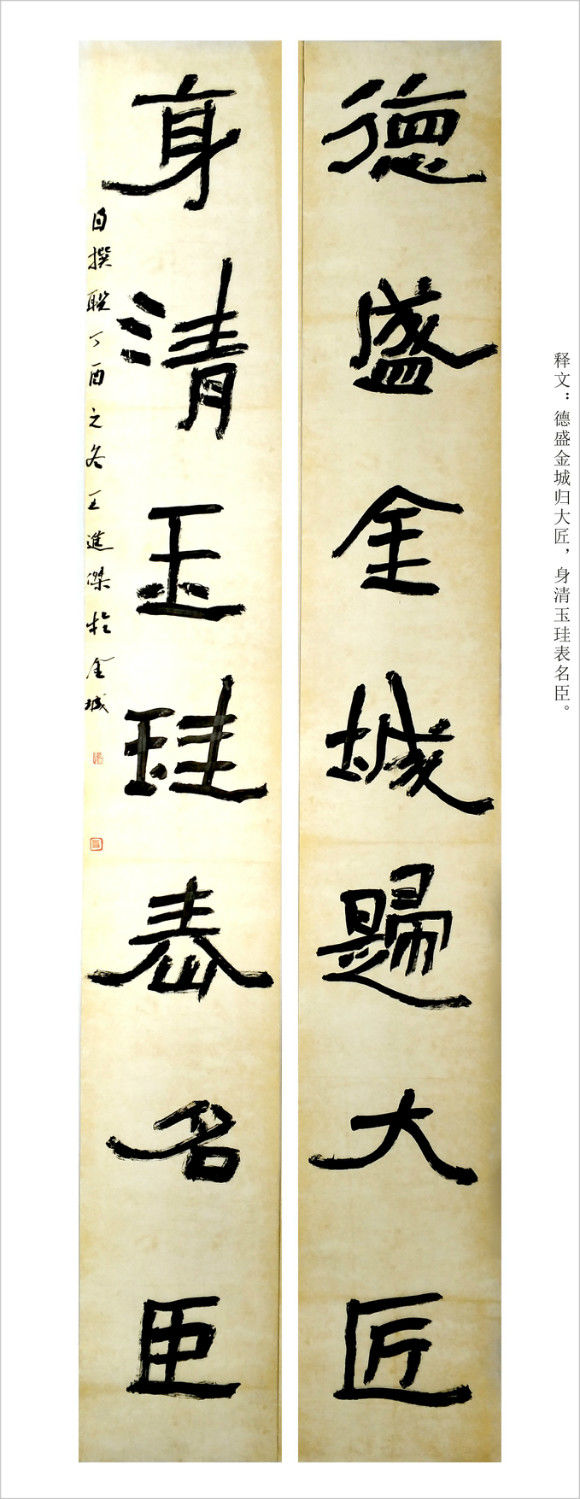 释文：德盛金城归大匠，身清玉珪表名臣。
德盛金城歸大匠
身清玉珪表名臣
自撰聯丁酉之冬王進傑於金城